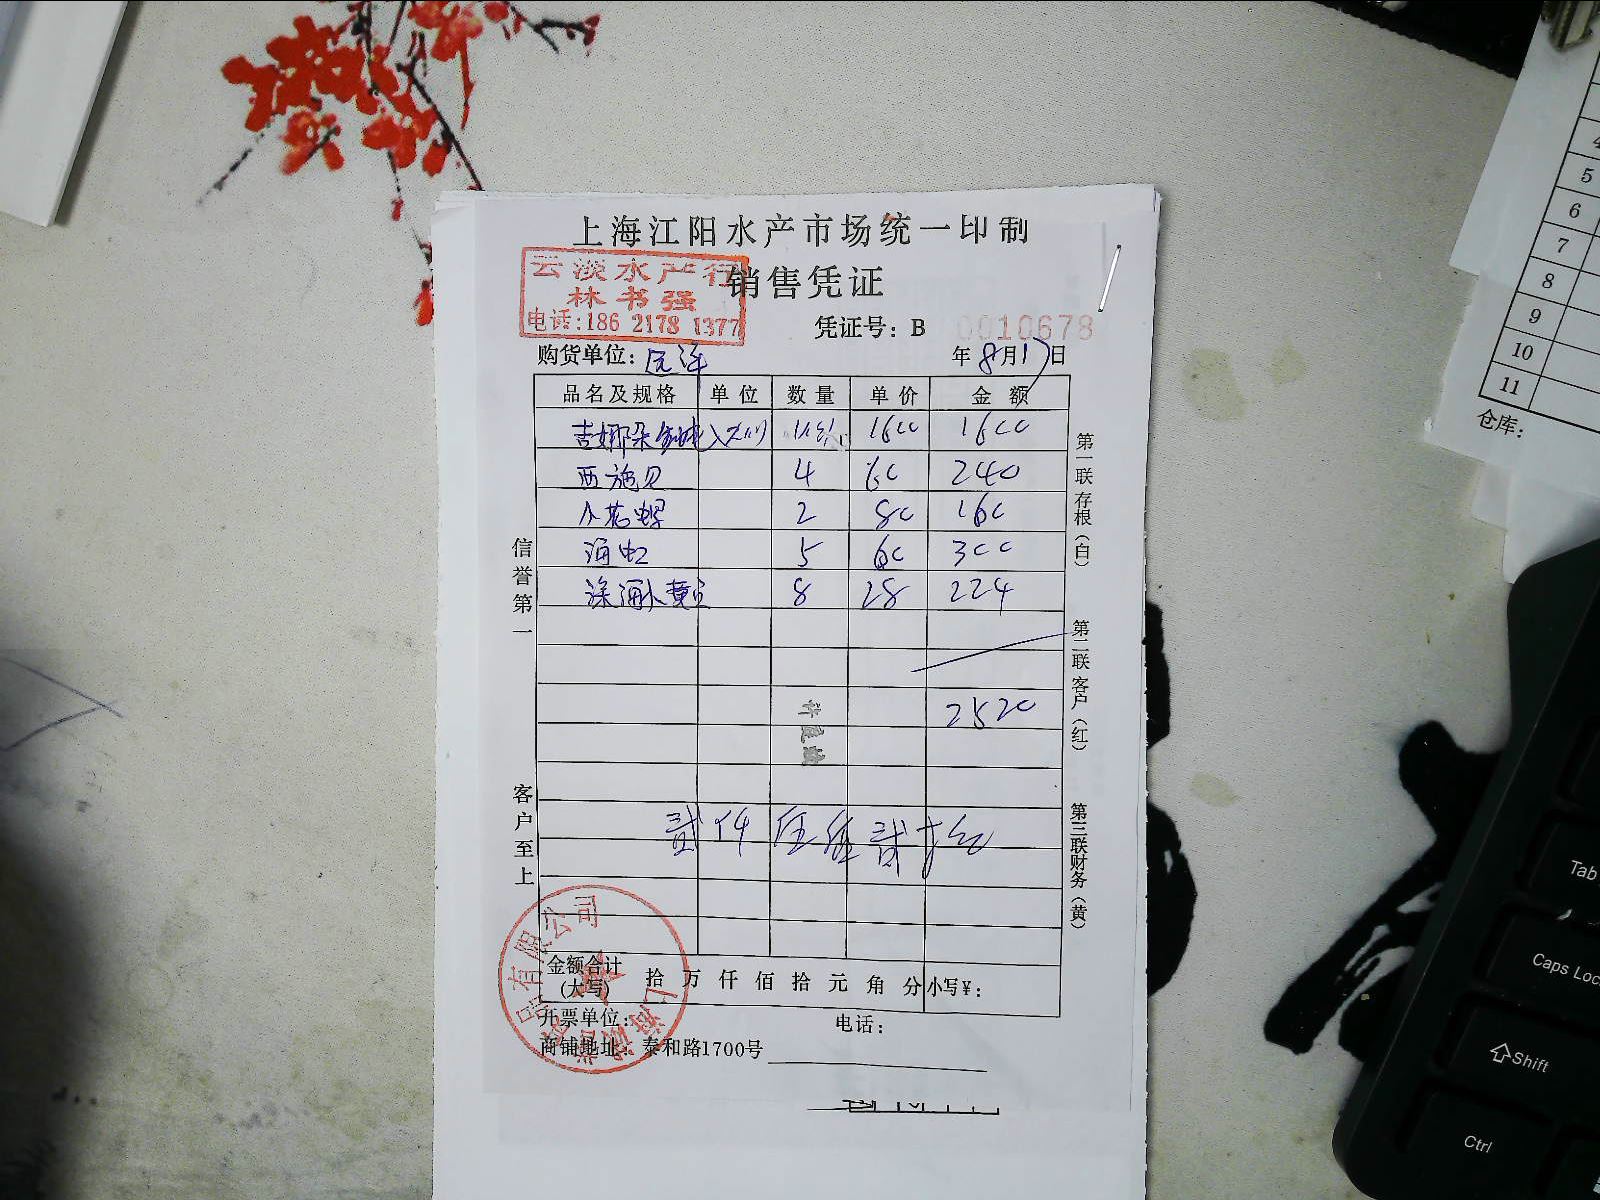 上海江阳水产市场统一印制
云淡水产行
林书强
电话:186 2178 1377
销售凭证
凭证号: B 0010678
购货单位: 远洋
年 8月17日
品名及规格 单位 数量 单价 金额
吉娜朵 1600 1600
西施贝 4 60 240
小花螺 2 80 160
海虹 5 60 300
深海小黄鱼 8 28 224
2520
贰仟伍佰贰十元
信誉第一
客户至上
第一联存根(白)
第二联客户(红)
第三联财务(黄)
金额合计(大写) 拾 万 仟 佰 拾 元 角 分 小写¥:
开票单位:
电话:
商铺地址: 泰和路1700号
有限公司
上海
4
5
6
7
8
9
10
11
仓库:
Tab
Caps Loc
Shift
Ctrl